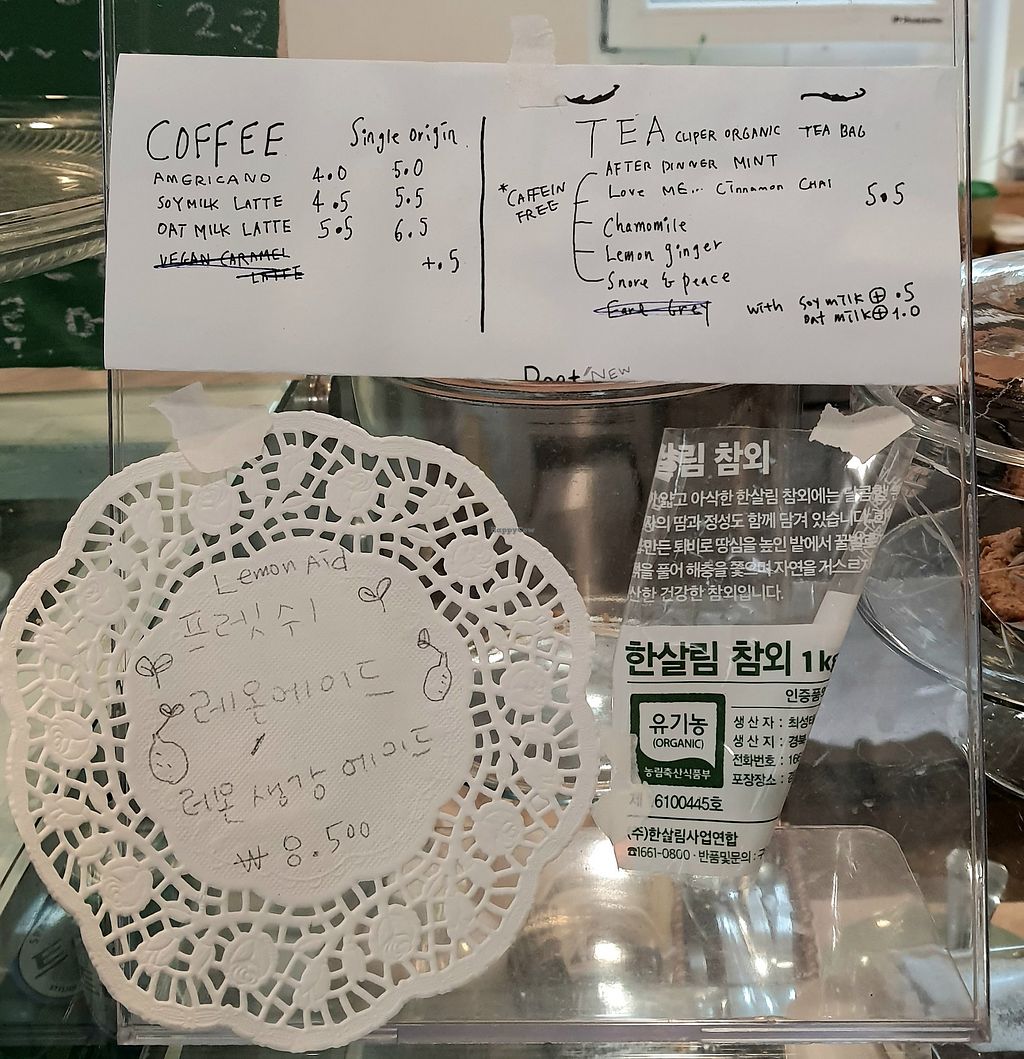 COFFEE Single origin
AMERICANO 4.0 5.0
SOYMILK LATTE 4.5 5.5
OAT MILK LATTE 5.5 6.5
VEGAN CARAMEL
LATTE +.5
TEA CLIPER ORGANIC TEA BAG
AFTER DINNER MINT
*CAFFEIN
FREE
LOVE ME... Cinnamon CHAI 5.5
Chamomile
Lemon ginger
Snore & peace
Earl Grey
with soy milk ⊕ .5
oat milk ⊕ 1.0
NEW
Lemon Aid
프레쉬
레몬에이드
/
레몬 생강 에이드
₩ 8.500
살림 참외
얇고 아삭한 한살림 참외에는
의 땀과 정성도 함께 담겨 있습니다.
만든 퇴비로 땅심을 높인 밭에서
을 풀어 해충을 쫓으며 자연을 거스르지
산한 건강한 참외입니다.
한살림 참외 1kg
인증품
유기농
(ORGANIC)
농림축산식품부
생산자 : 최성
생산지 : 경북
전화번호 : 16
포장장소 :
제 16100445호
(주)한살림사업연합
☎1661-0800 · 반품및문의 : 구
HappyCow